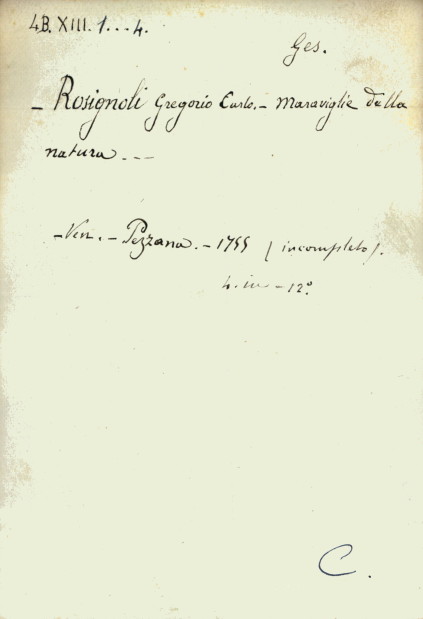 4B. XIII. 1...4.
Ges.
- Rosignoli Gregorio Carlo. - Maraviglie della
natura . - -
- Ven. - Pezzana. - 1755 (incompleto).
4. in - 12º.
C.